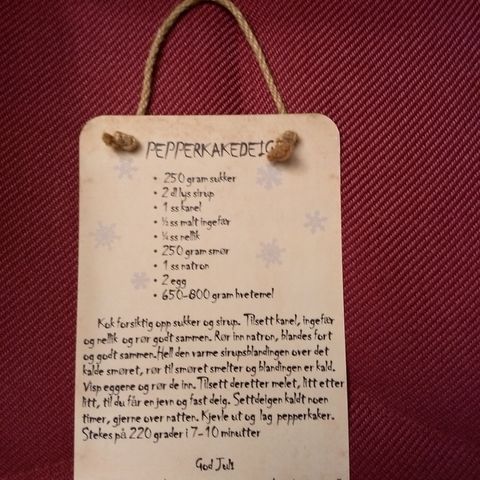 PEPPERKAKEDEIG
• 250 gram sukker
• 2 dl lys sirup
• 1 ss kanel
• ½ ss malt ingefær
• ¼ ss nellik
• 250 gram smør
• 1 ss natron
• 2 egg
• 650-800 gram hvetemel
Kok forsiktig opp sukker og sirup. Tilsett kanel, ingefær
og nellik og rør godt sammen. Rør inn natron, blandes fort
og godt sammen. Hell den varme sirupsblandingen over det
kalde smøret, rør til smøret smelter og blandingen er kald.
Visp eggene og rør de inn. Tilsett deretter melet, litt etter
litt, til du får en jevn og fast deig. Sett deigen kaldt noen
timer, gjerne over natten. Kjevle ut og lag pepperkaker.
Stekes på 220 grader i 7-10 minutter
God Jul!